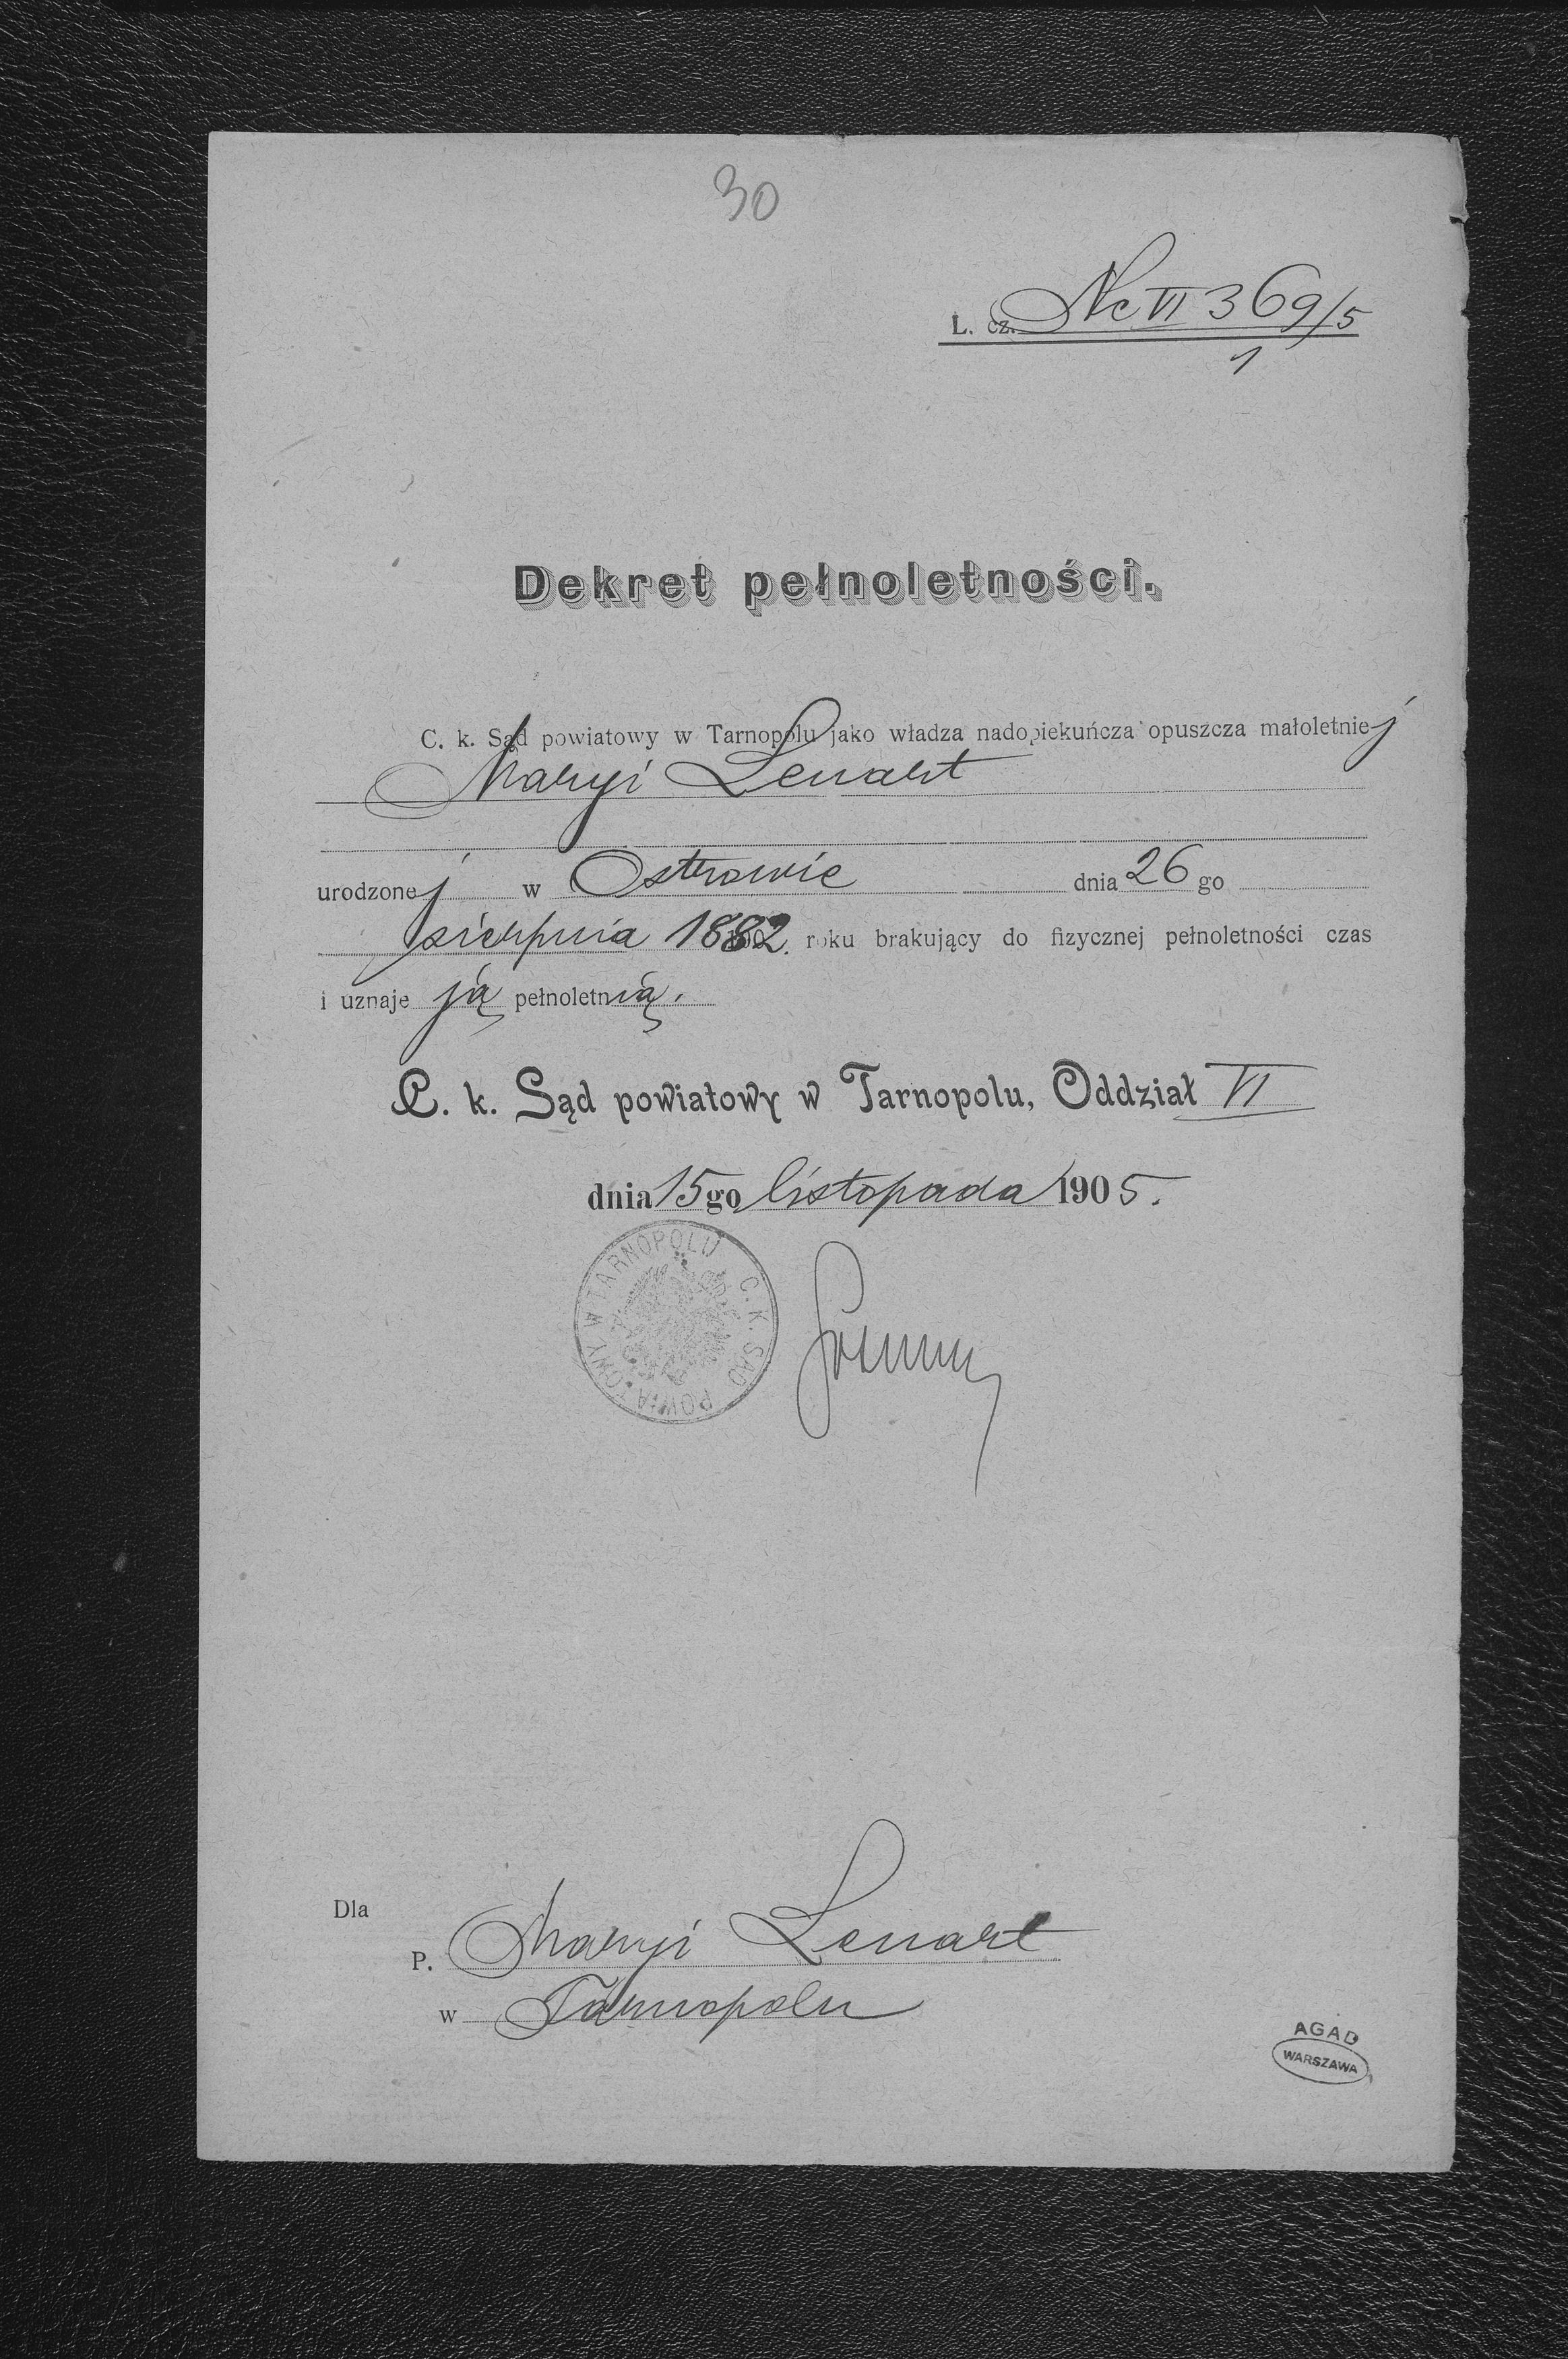 30
L. cz. Nc VI 369/5
1
Dekret pełnoletności.
C. k. Sąd powiatowy w Tarnopolu jako władza nadopiekuńcza opuszcza małoletniej
Maryi Lenart
urodzonej w Ostrowie dnia 26 go
sierpnia 1882. roku brakujący do fizycznej pełnoletności czas
i uznaje ją pełnoletnią.
C. k. Sąd powiatowy w Tarnopolu, Oddział VI
dnia 15 go listopada 1905.
C. K. SĄD POWIATOWY W TARNOPOLU
Dla
P. Maryi Lenart
w Tarnopolu
AGAD
WARSZAWA